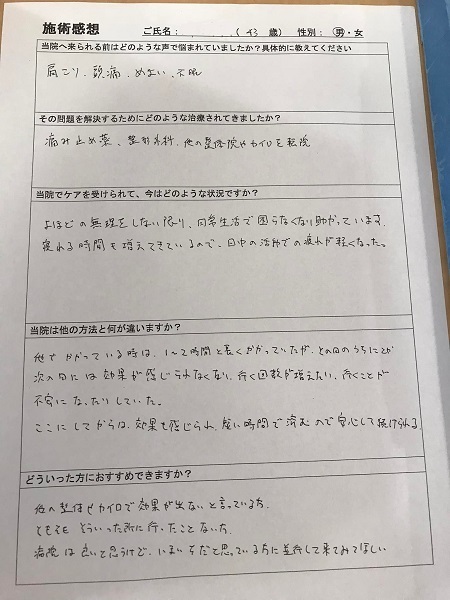 施術感想
ご氏名: (43 歳) 性別: 男・女
当院へ来られる前はどのような声で悩まれていましたか?具体的に教えてください
肩こり、頭痛、めまい、不眠
その問題を解決するためにどのような治療されてきましたか?
痛み止め薬、整形外科、他の整体院やカイロを転院
当院でケアを受けられて、今はどのような状況ですか?
よほどの無理をしない限り、日常生活で困らなくなり助かっています。
寝れる時間も増えてきているので、日中の活動での疲れが軽くなった。
当院は他の方法と何が違いますか?
他でかかっている時は、1〜2時間と長くかかっていたが、その日のうちに
次の日には効果が感じられなくなり、行く回数が増えたり、行くことが
不安になったりしていた。
ここにしてからは、効果も感じられ、短い時間で済むので安心して続けられる
どういった方におすすめできますか?
他の整体やカイロで効果が出ないと言っている方、
そもそもどういった所に行ったことない方、
病院は良いと思うけど、いまいちだと思っている方に並行して来てみてほしい